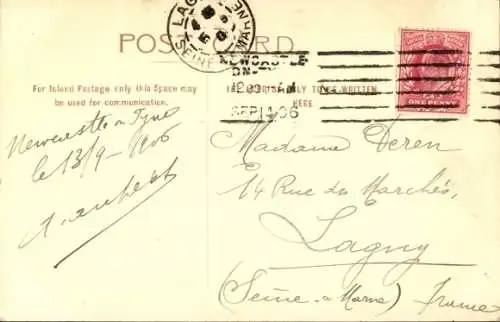 POST CARD
LAGNY
SEINE-ET-MARNE
NEWCASTLE
ON-
12 09 AM
SEP 14 06
ONE PENNY
For Inland Postage only this Space may
be used for communication.
ONLY TO BE WRITTEN
HERE
Newcastle on Tyne
le 13/9 - 1906
Madame Deren
14 Rue du Marchés,
Lagny
(Seine-a-Marne) France